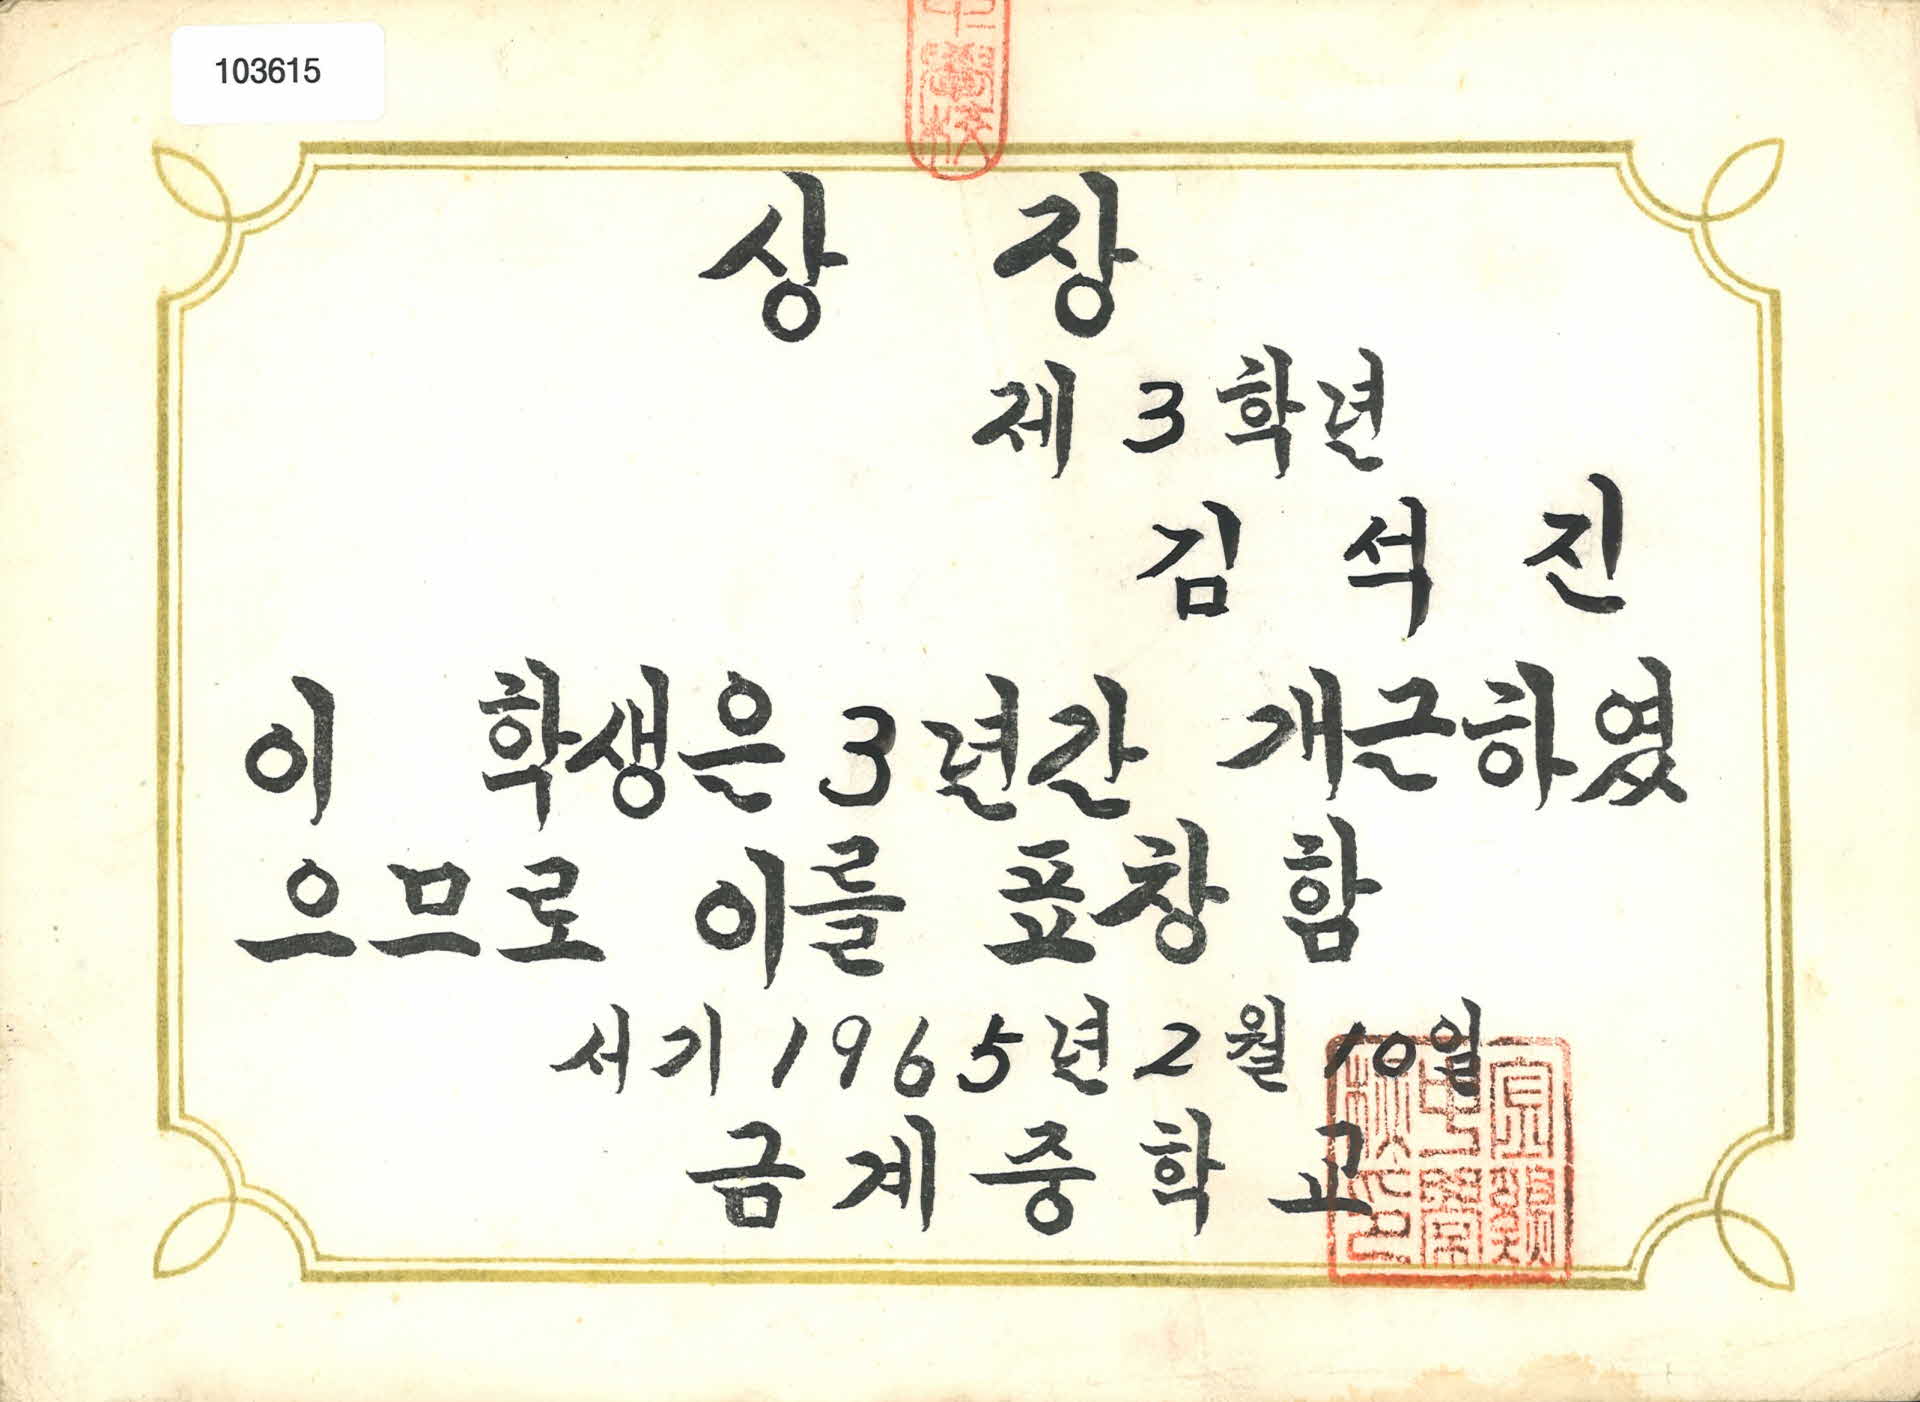 103615
中學校
상 장
제 3 학년
김 석 진
이 학생은 3년간 개근하였
으므로 이를 표창 함
서기 1965년 2월 10일
금계중학교